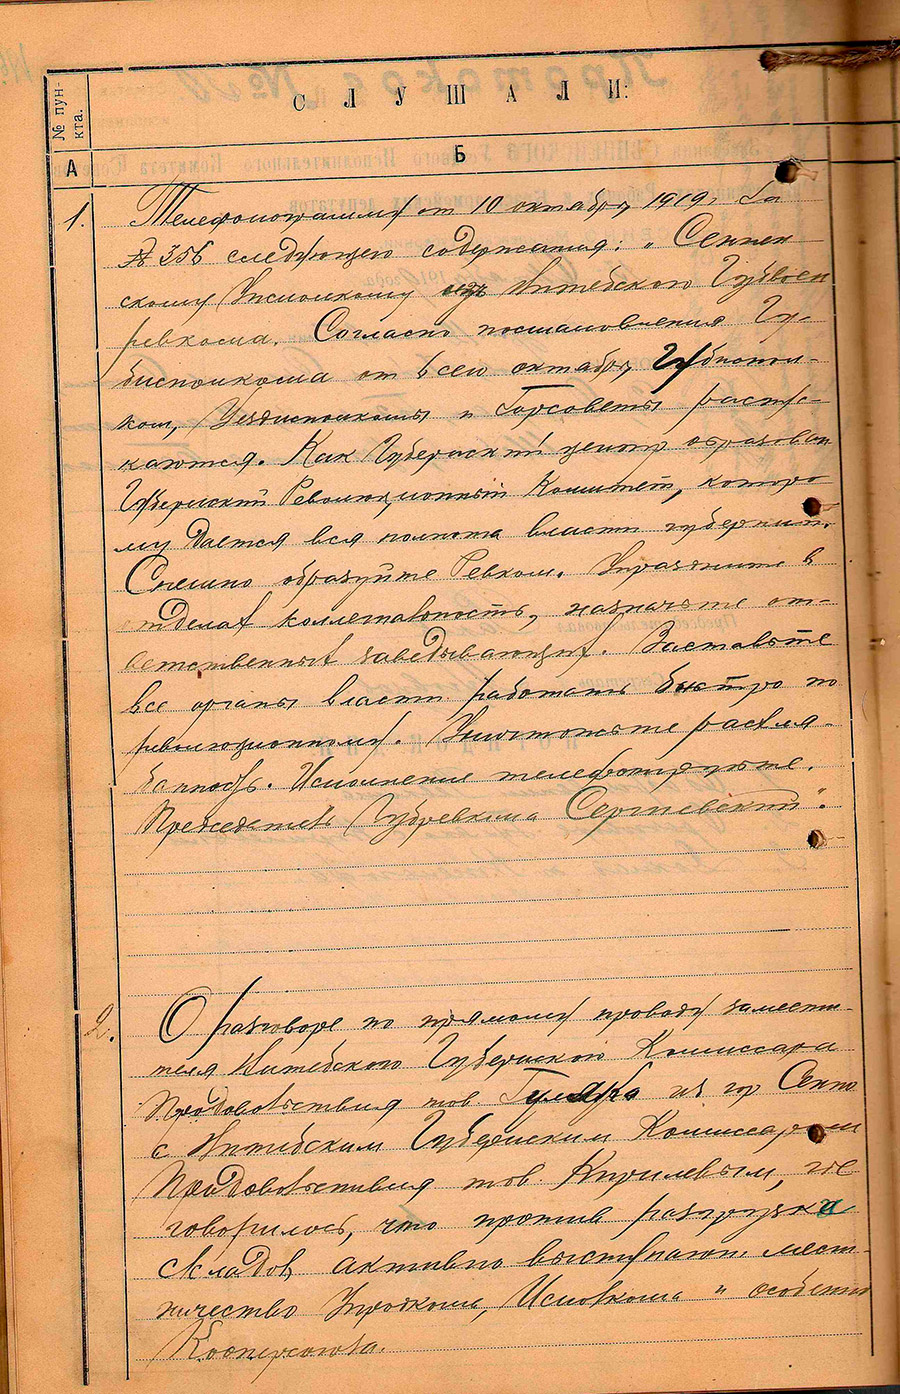 № пун-
кта.
СЛУШАЛИ:
А
Б
1.
Телефонограмму от 10 октября 1919 г. за
№ 356 следующего содержания: „Сеннен
скому Уисполкому из Витебского Губвоен
ревкома. Согласно постановления Гу-
бисполкома от 6 сего октября Губиспол-
ком, Уездисполкомы и Горсоветы распус-
каются. Как Губернский центр образован
Губернский Революционный Комитет, которо
му дается вся полнота власти губернии.
Спешно образуйте Ревком. Упраздните в
отделах коллегиальность, назначьте от-
ветственных заведывающих. Заставьте
все органы власти работать быстро по
революционному. Уничтожьте расхля-
банность. Исполнение телефонируйте.
Предгубревкома Сергиевский".
2.
О разговоре по прямому проводу замести-
теля Витебского Губернского Комиссара
Продовольствия тов из гор Сенно
с Витебским Губернским Комиссаром
Продовольствия тов. Кирилевым, где
говорилось, что против разгрузки
складов активно выступают мест-
ничество Упродкома, Исполкома и особенно
Кооперсоюза.